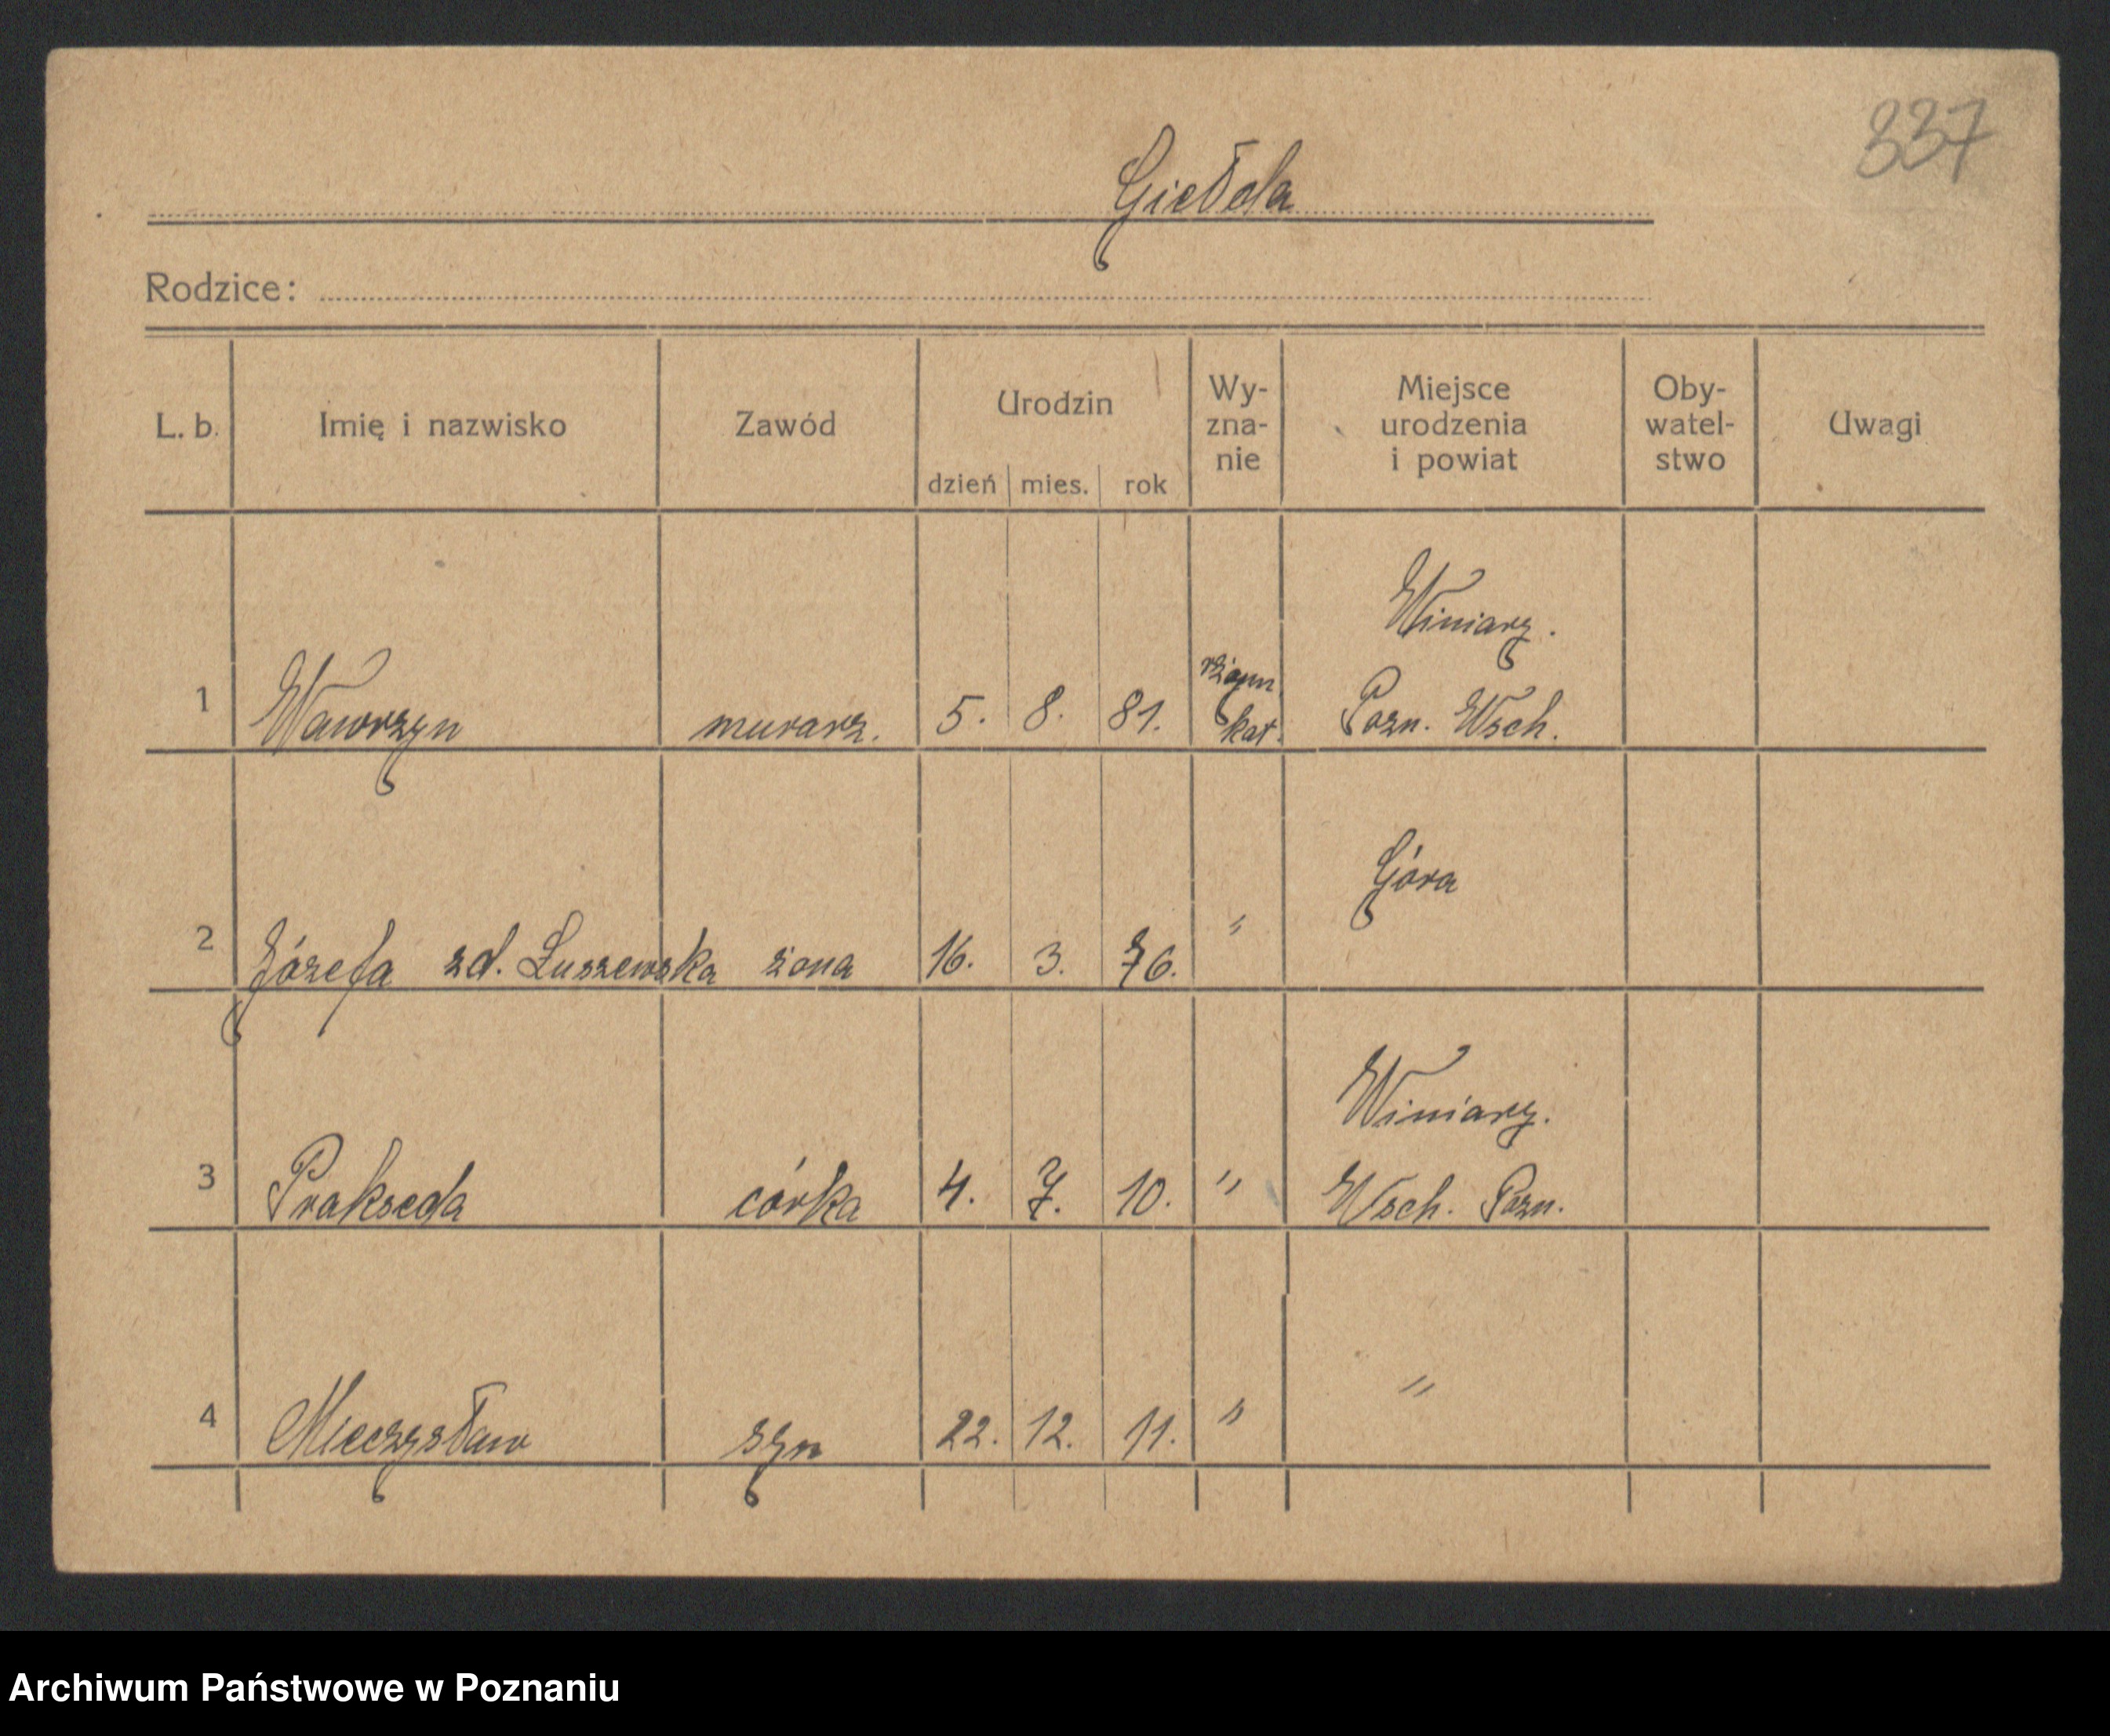 337
Giełda
Rodzice:
L. b. Imię i nazwisko Zawód Urodzin dzień mies. rok Wy-zna-nie Miejsce urodzenia i powiat Oby-watel-stwo Uwagi
Winiary.
1 Wawrzyn murarz. 5. 8. 81. rzym kat. Pozn. Wsch.
Góra
2 Józefa zd. Luszewska żona 16. 3. 76. "
Winiary.
3 Prakseda córka 4. 7. 10. " Wsch. Pozn.
4 Mieczysław syn 22. 12. 11. " "
Archiwum Państwowe w Poznaniu